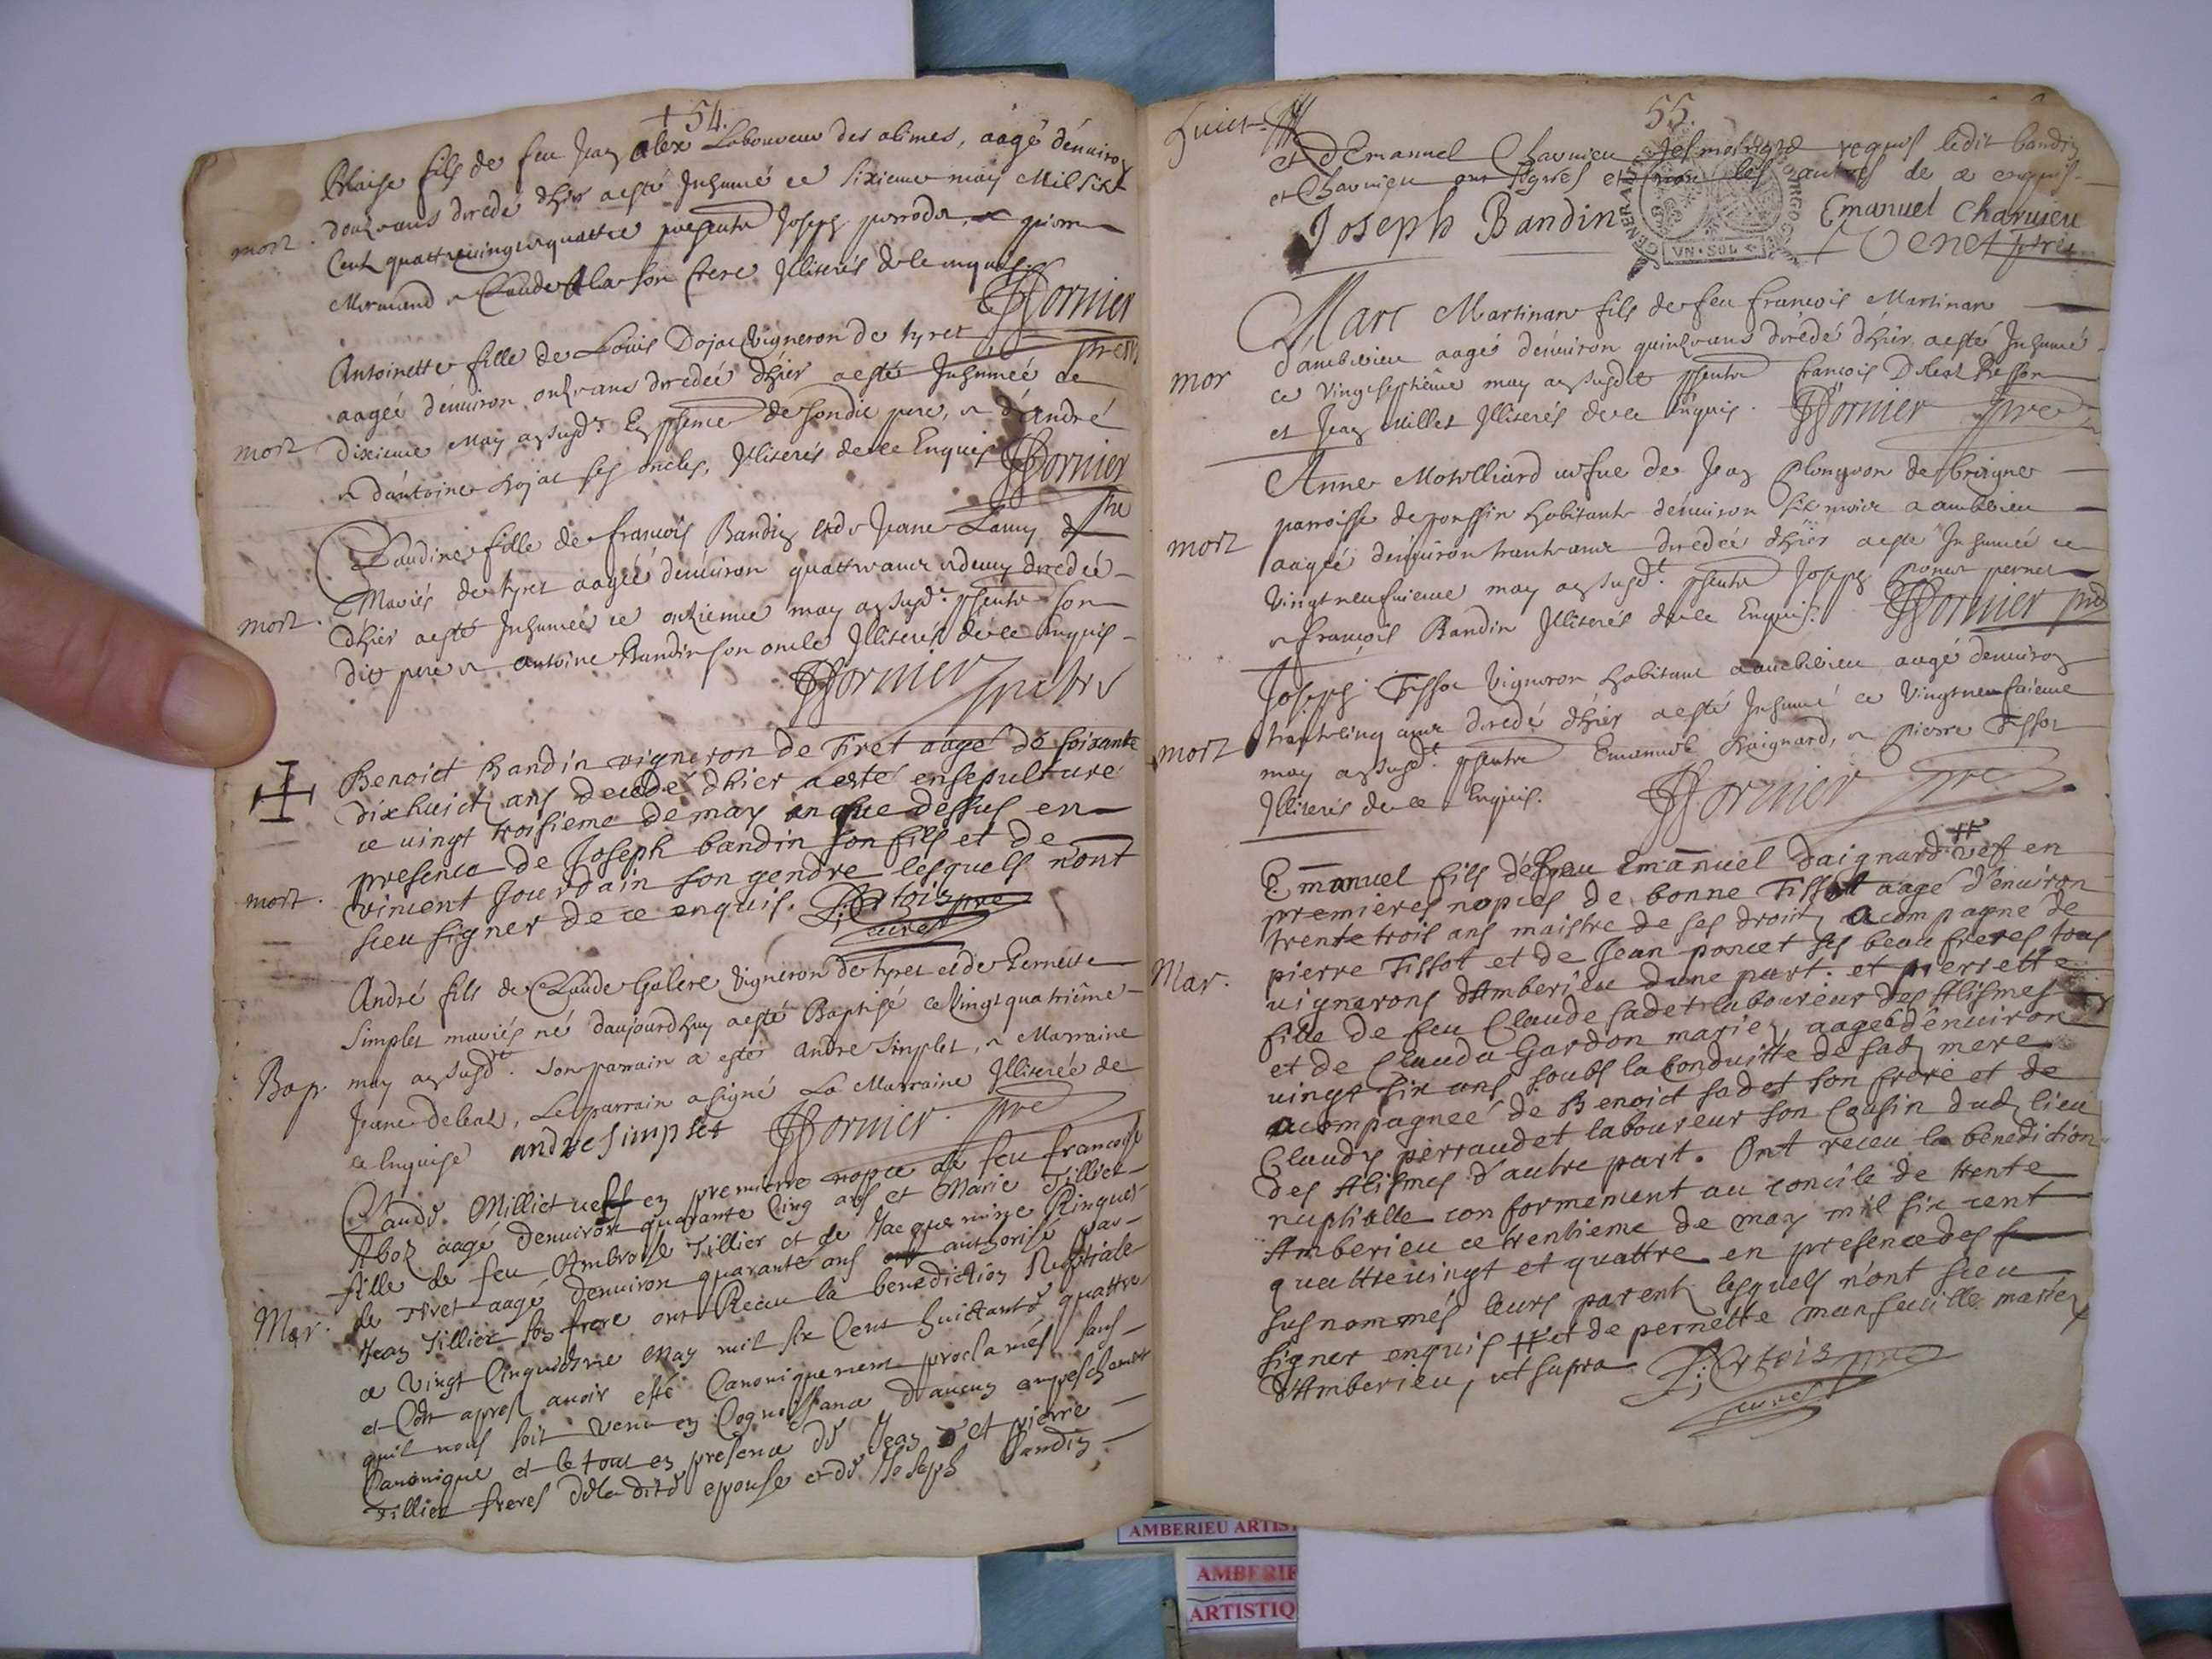 + 54.
Blaise fils de feu Jean Alex Laboureur des alimes, aagé d'enuiron
mort. douz ans decedé d'hier a esté Inhumé ce sixieme may Mil six
Cents quattreuingts quattre presents Joseph perrodet, et pierre
Mermand et Claude Alex son frere Illiterés de ce enquis.
JFornier
pre
Antoinette fille de Louis Dojat Vigneron de tyret
aageé d'enuiron onz ans decedeé d'hier a esté Inhumeé ce
mort dixieme May an susd.t En psence de son dit pere, et d'André
et d'antoine Dojat ses oncles, Illiterés de ce Enquis JFornier
pre
Claudine fille de francois Bandin et de Jeane Lamy
Mariés de tyret aageé d'enuiron quattr ans et demy decedeé
mort. d'hier a esté Inhumeé ce onzieme may an susd.t psents son
dit pere et antoine Bandin son oncle Illiterés de ce Enquis
JFornier pretre
Benoict Bandin vigneron de Tiret aagé de soixante
dixhuict ans decedé dhier a esté ensepulturé
ce vingt troisieme de may an que dessus en
presence de Joseph bandin son fils et de
mort. vincent Jourdain son gendre lesquels n'ont
sceu signer de ce enquis. Artois pre
curé
André fils de Claude Galere Vigneron de tyret et de Pernette
Simplet mariés né d'aujourdhuy a esté Baptisé ce Vingt quatriême
Bap. may an susd.t. Son parrain a esté André Simplet, et Marraine
Jeane deleaz, Le parrain a signé La Marraine Illiterée de
ce Enquise andre simplet JFornier pre
Claude Milliet uefs en premiere nopce de feu francoise
Aboz aagé denuiron quarante Cinq ans et Marie Tillier
fille de feu Ambroise Tillier et de Jacquemine Ringuet
de Tiret aagé denuiron quarante ans authorisé par
Mar. Jean Tillier son frere ont Receu la benediction Nuptiale
ce Vingt Cinquiesme May mil six Cent huictante quattre
et Ce apres auoir esté Canoniquement proclamés sans
quil nous soit venu en Cognoissance d'aucun empeschement
Canonique et le tout en presence de Jean et pierre
Tillier freres de la dite epouse et de Joseph Bandin
55.
Suict
et d'Emanuel Charuieu requis ledit bandin
et Charuieu ont signés et non les autres de ce enquis
Joseph Bandin Emanuel Charuieu
Venet pre
GENERALITE
VN·SOL
Marc Martinan fils de feu francois Martinan
d'amberieu aagé d'enuiron quinz ans decedé d'hier a esté Inhumé
mor ce Vingt septiême may an susd.t psents francois Deleaz Besson
et Jean Millet Illiterés de ce enquis. JFornier pre
Anne Motilliard uefue de Jean Plongeon de
parroisse de habitante d'enuiron six mois a amberieu
mort aageé d'enuiron trente ans decedeé d'hier a esté Inhumeé ce
Vingt neufuieme may an susd.t. psents Joseph Poncet pernet
et francois Bandin Illiterés de ce Enquis. JFornier pre
Joseph Tissot Vigneron habitant a amberieu aagé d'enuiron
trente cinq ans decedé d'hier a esté Inhumé ce Vingt neufuieme
mort may an susd.t psents Emanuel Daignard, et pierre Tissot
Illiterés de ce Enquis. JFornier pre
Emanuel fils de feu Emanuel daignard # vef en
premieres nopces de bonne Tissot aagé d'enuiron
trente trois ans maistre de ses droits acompagné de
pierre Tissot et de Jean poncet ses beau freres tous
Mar. uignerons d'Amberieu dune part. et pierrette
fille de feu Claude sadet laboureur des Alismes
et de Clauda Gardon mariez, aageé d'enuiron
uingt six ans soubs la conduitte de sad mere
acompagneé de Benoict sadet son frere et de
Claudy perraudet laboureur son Cousin dud lieu
des Alismes d'autre part. Ont receu la benediction
nuptialle conformement au concile de trente
Amberieu ce trentieme de may mil six cent
quattreuingt et quattre en presence des
susnommés leurs parents lesquels n'ont sceu
signer enquis # et de pernette manseuille mariez
d'Amberieu, ut supra Artois pre
curé
AMBERIEU ARTIST
AMBERIE
ARTISTIQ